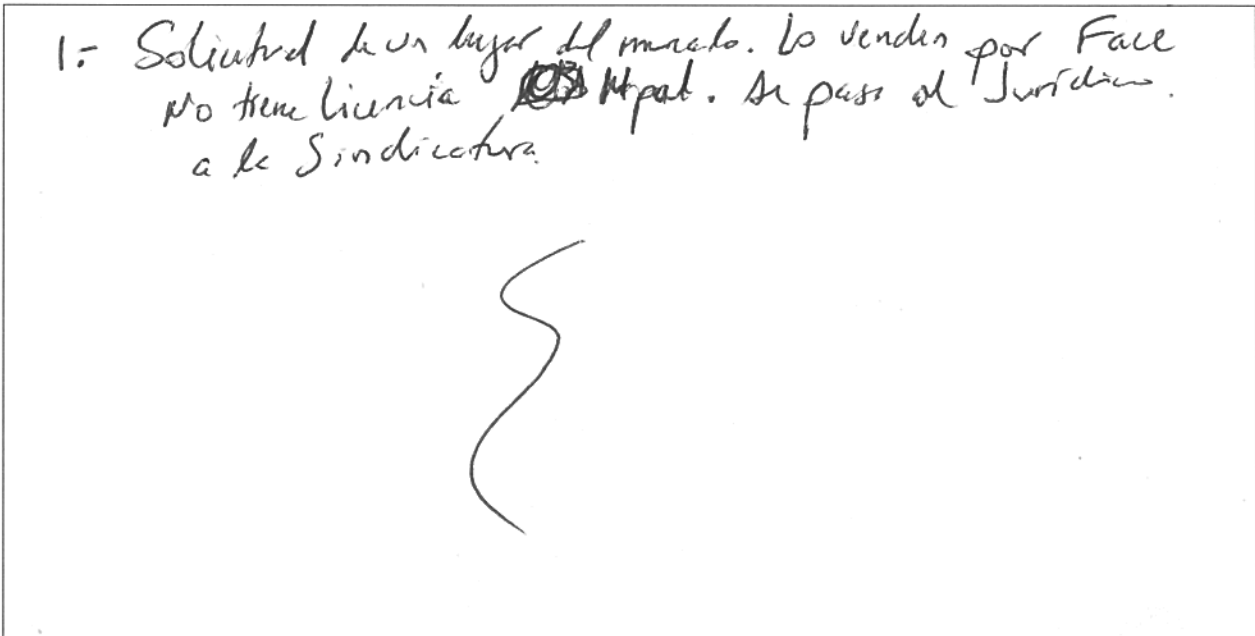 1.- Solicitud de un lugar del mercado. Lo venden por Face
No tiene licencia Mpal. Se paso al Jurídico.
a la Sindicatura.